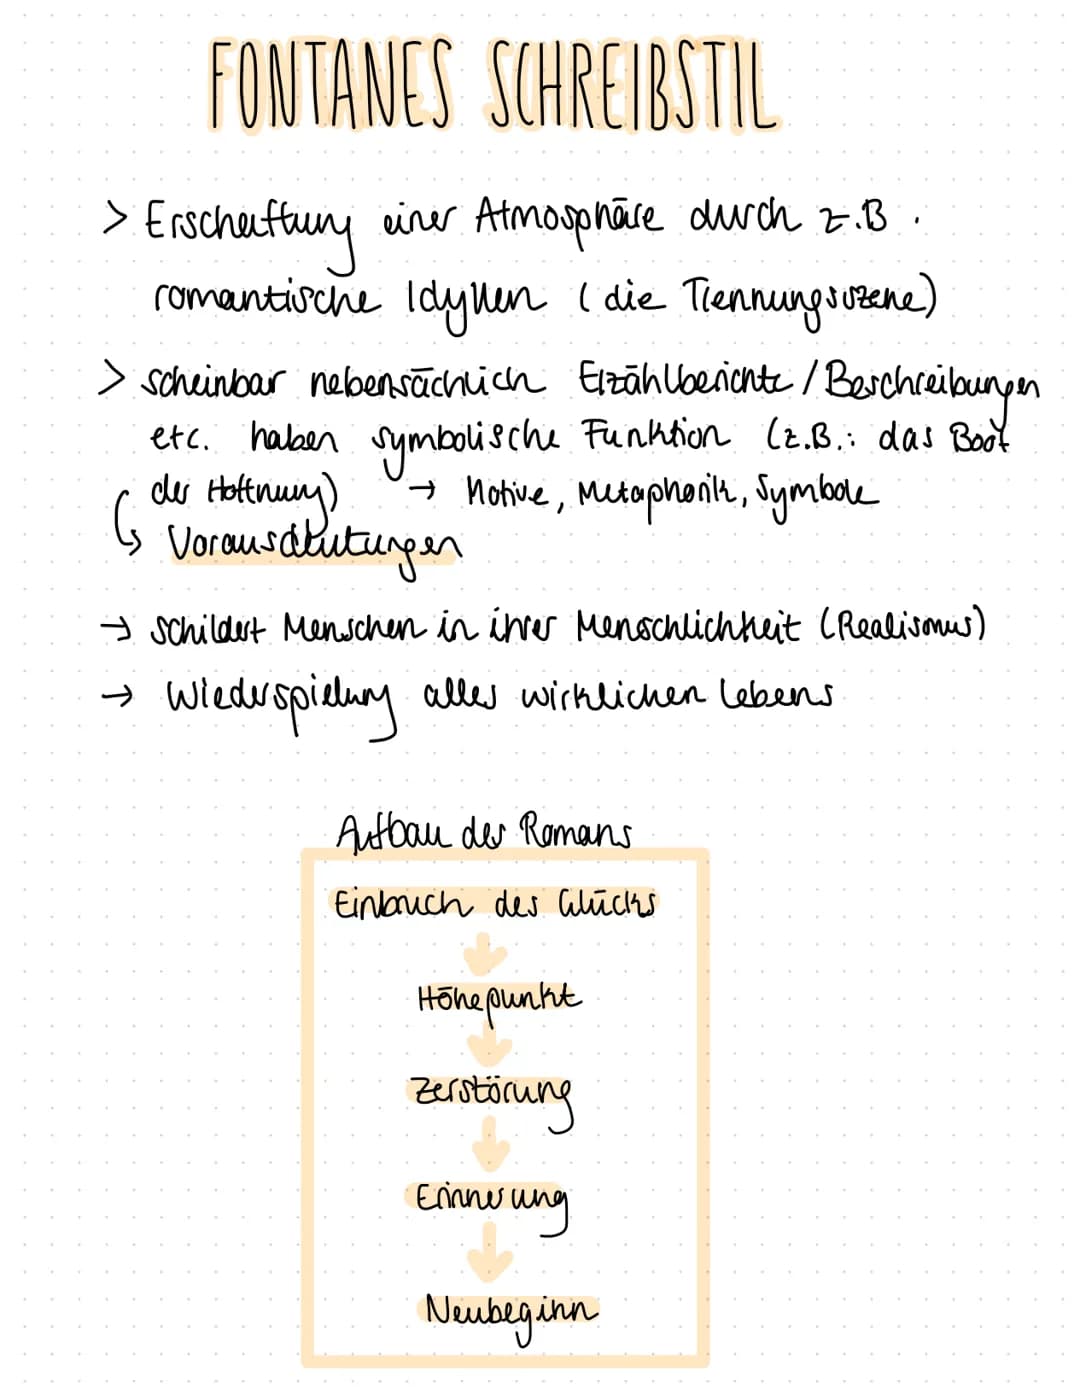 FONTANES SCHREIBSTIL
> Erschaffung einer Atmosphäre durch z.B.
romantische Idyllen (die Trennungsszene)
> scheinbar nebensächlich Erzählberichte / Beschreibungen
etc. haben symbolische Funktion (z.B.: das Boot
der Hoffnung) → Motive, Metaphorik, Symbole
↳ Vorausdeutungen
→ schildert Menschen in ihrer Menschlichkeit (Realismus)
→ Wiederspielung alles wirklichen Lebens
Aufbau des Romans
Einbruch des Glücks
Höhepunkt
Zerstörung
Erinnerung
Neubeginn